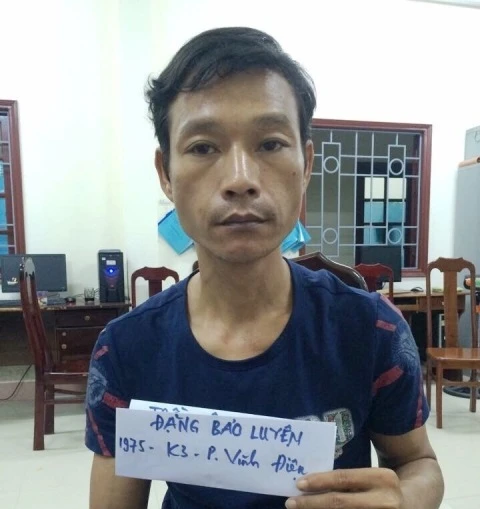 ĐẶNG BẢO LUYỆN
1975 - K3 - P. Vĩnh Điện